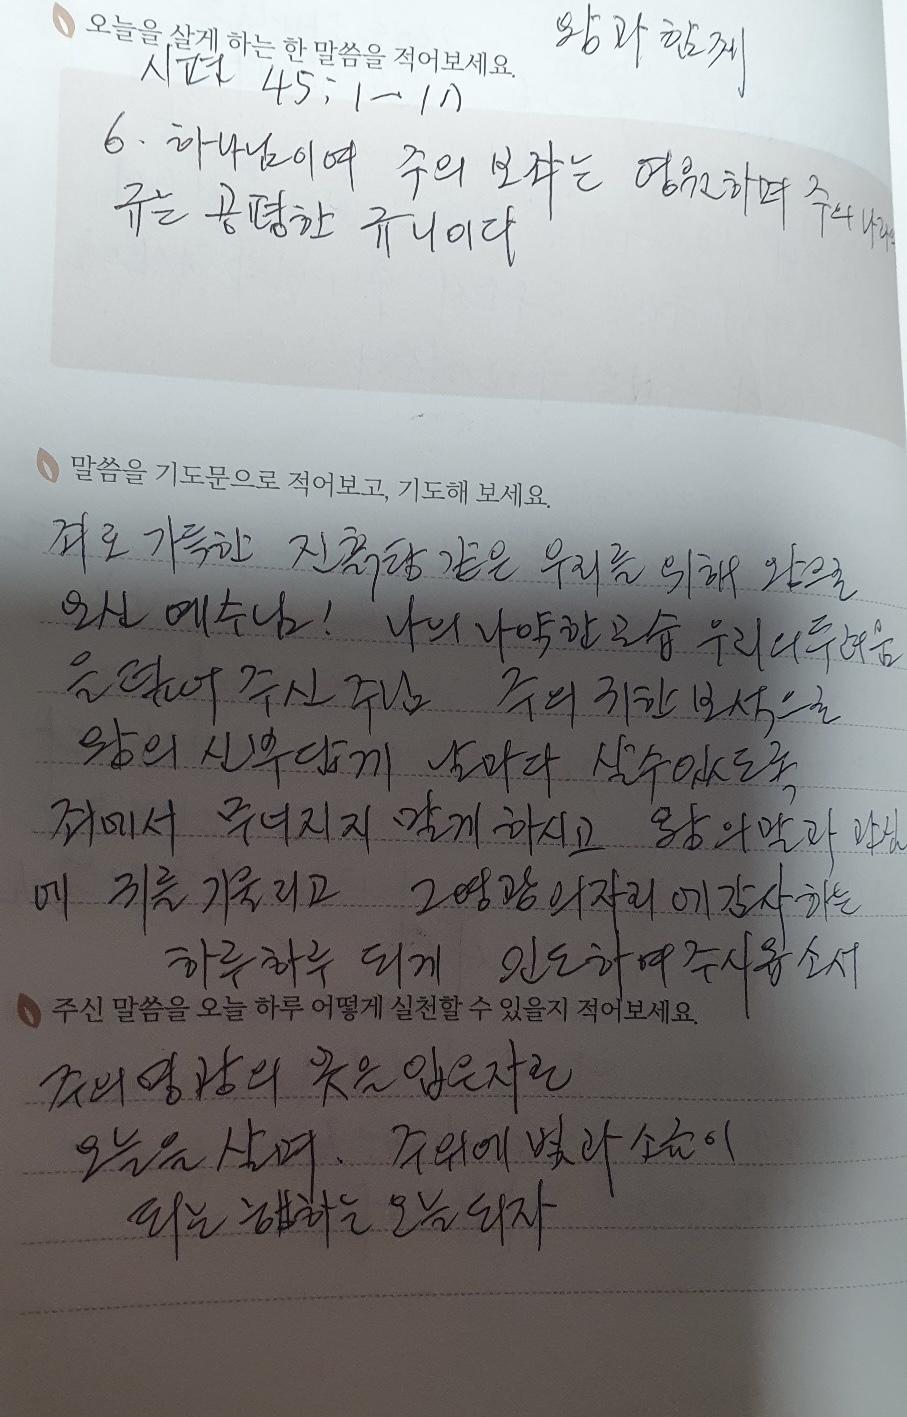 오늘을 살게 하는 한 말씀을 적어보세요.
왕과 함께
시편 45:1-17
6. 하나님이여 주의 보좌는 영원하며 주의 나라의
규는 공평한 규니이다
말씀을 기도문으로 적어보고, 기도해 보세요.
죄로 가득한 진흙탕 같은 우리를 위해 왕으로
오신 예수님! 나의 나약한 모습 우리의 두려움
을 덮어 주신 주님 주의 귀한 보석으로
왕의 신부답게 날마다 살수있도록
죄에서 무너지지 않게 하시고 왕의 말과 관심
에 귀를 기울리고 그영광의자리에 감사하는
하루하루 되게 인도하여주시옵소서
주신 말씀을 오늘 하루 어떻게 실천할 수 있을지 적어보세요.
주의 영광의 옷을 입은자로
오늘을 살며. 주위에 빛과 소금이
되는 행하는 오늘 되자